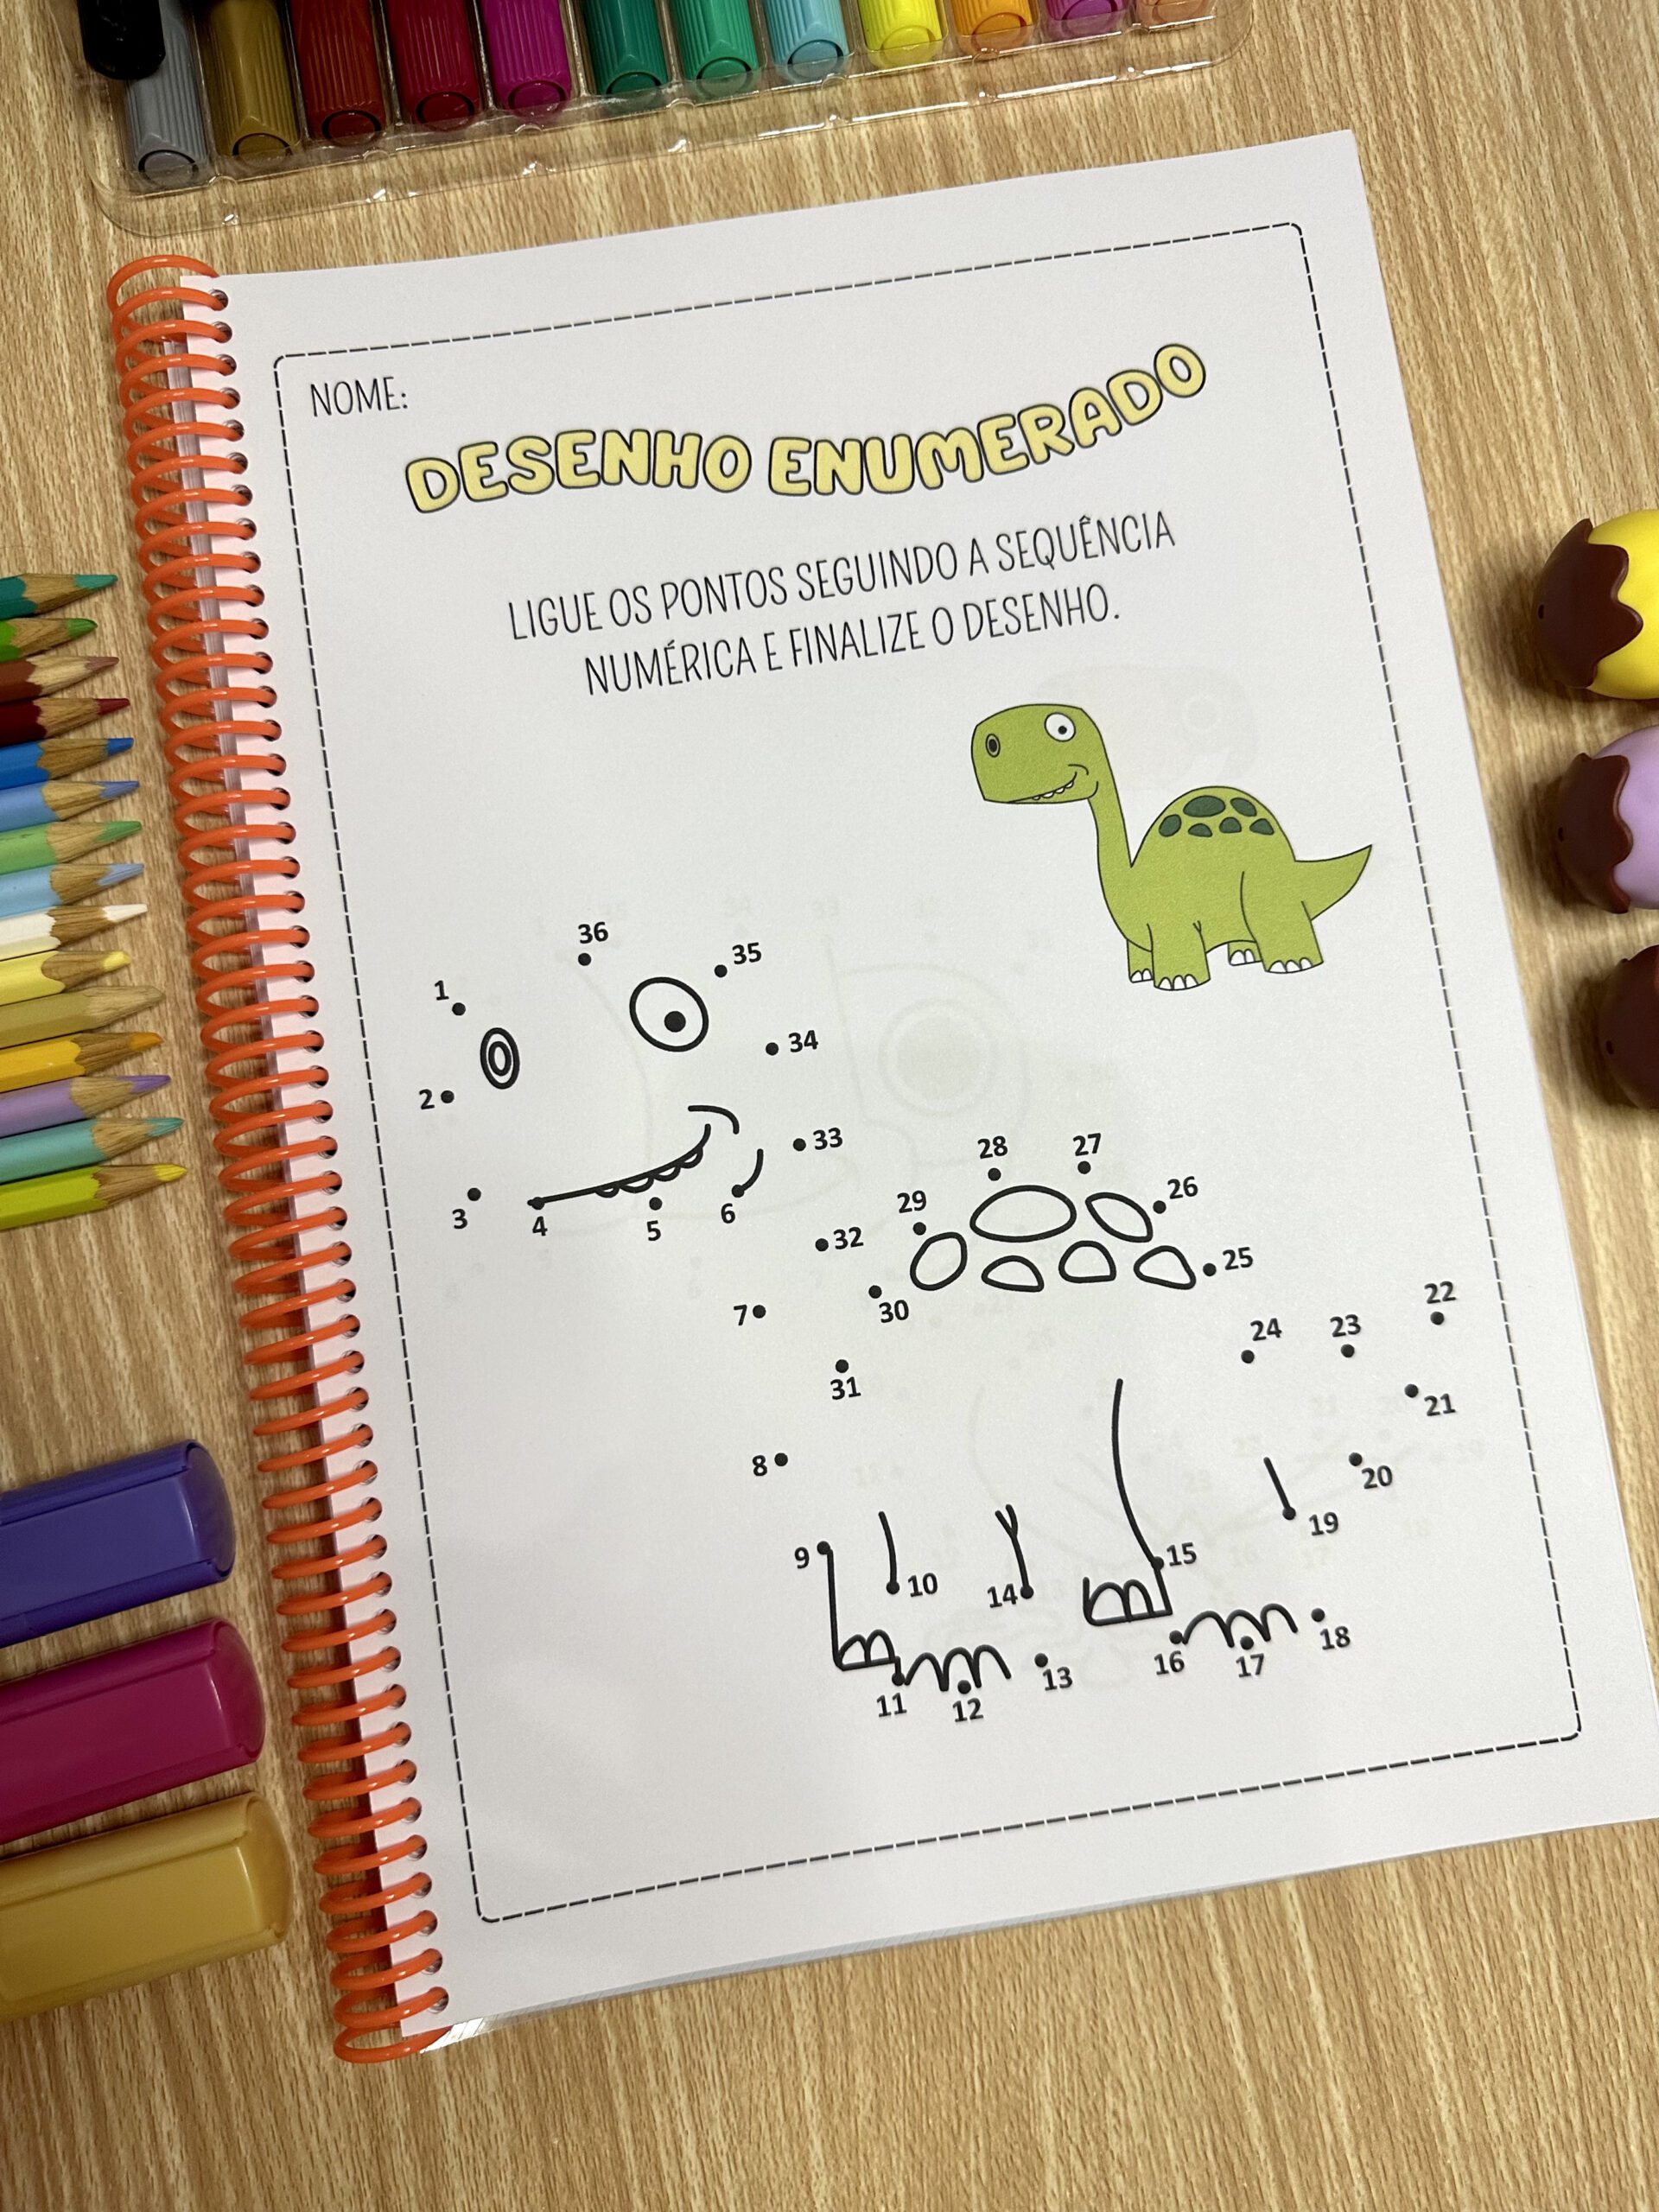 NOME:
DESENHO ENUMERADO
LIGUE OS PONTOS SEGUINDO A SEQUÊNCIA
NUMÉRICA E FINALIZE O DESENHO.
36
35
1
34
2
33
28
27
26
29
3
4
5
6
32
25
7
30
22
24
23
31
21
8
20
19
9
10
14
15
18
16
17
13
11
12